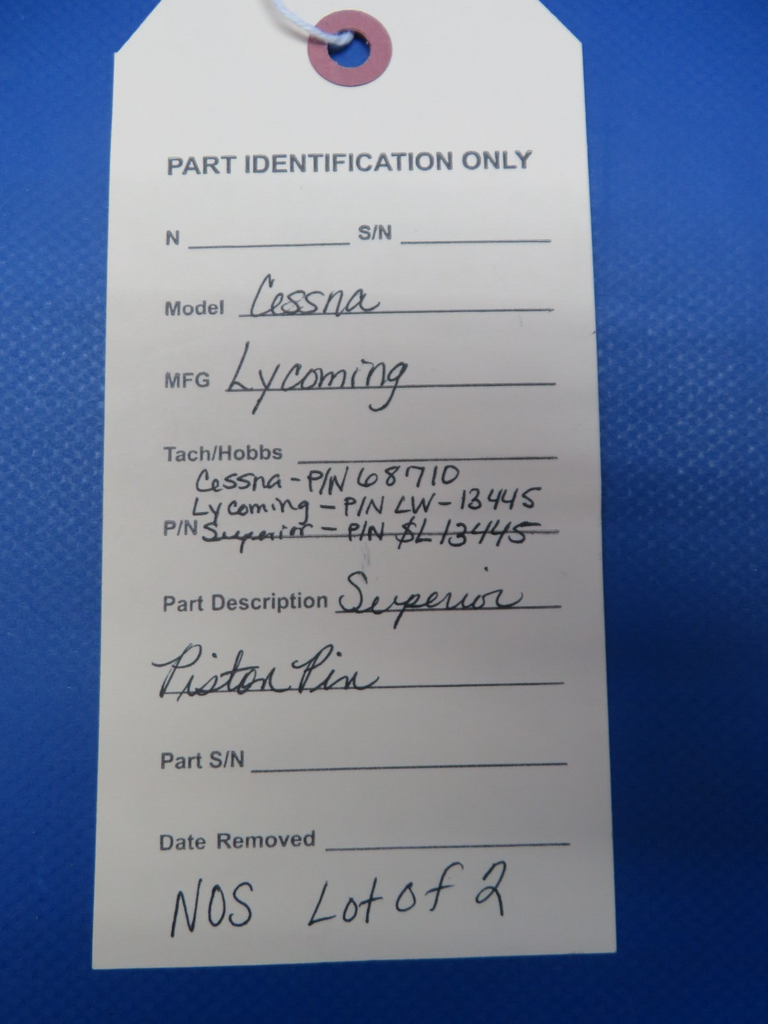 PART IDENTIFICATION ONLY
N S/N
Model Cessna
MFG Lycoming
Tach/Hobbs
Cessna - P/N 68710
Lycoming - P/N LW-13445
P/N Superior - P/N SL13445
Part Description Superior
Piston Pin
Part S/N
Date Removed
NOS Lot of 2